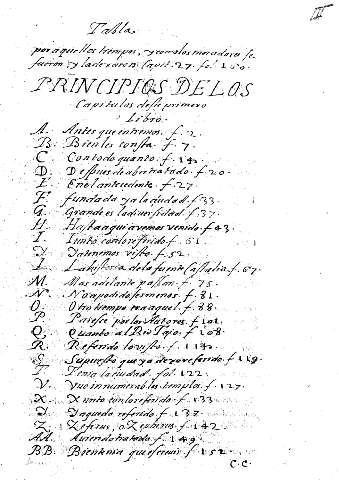 III
Tabla
por aquellos tiempos, y como los moradores se
fueron y la dexaron Capit. 27. fol. 160.
PRINCIPIOS DE LOS
Capitulos deste primero
Libro.
A. Antes que entremos. f. 2.
B. Bien les consta. f. 7.
C. Con todo quanto. f. 14.
D. Despues de aber tratado. f. 20.
E. En el antecedente. f. 27.
F. fundada ya la ciudad. f. 33.
G. Grande es la diuersidad. f. 37.
H. Hasta aqui auemos venido. f. 43.
I. Iunto con lo referido. f. 51.
J. Ja tenemos visto. f. 52.
L. La historia de la fuente Castalia. f. 67.
M. Mas adelante passan. f. 75.
N. No a podido ser menos. f. 81.
O. Otro tiempo aquel. f. 88.
P. Parese por los Autores. f. 101.
Q. Quanto al Rio Tajo. f. 108.
R. Referido lo visto. f. 114.
S. Supuesto que ya dexo referido. f. 119.
T. Tenia la ciudad. fol. 122.
V. Vuo innumerables templos. f. 127.
X. Xunto con lo referido. f. 133.
J. Ja quedo referido. f. 137.
Z. Zefirus, o Zephiros. f. 142.
AA. Auiendo tratado. f. 149.
BB. Bien tenia que f. 152.
C.C.